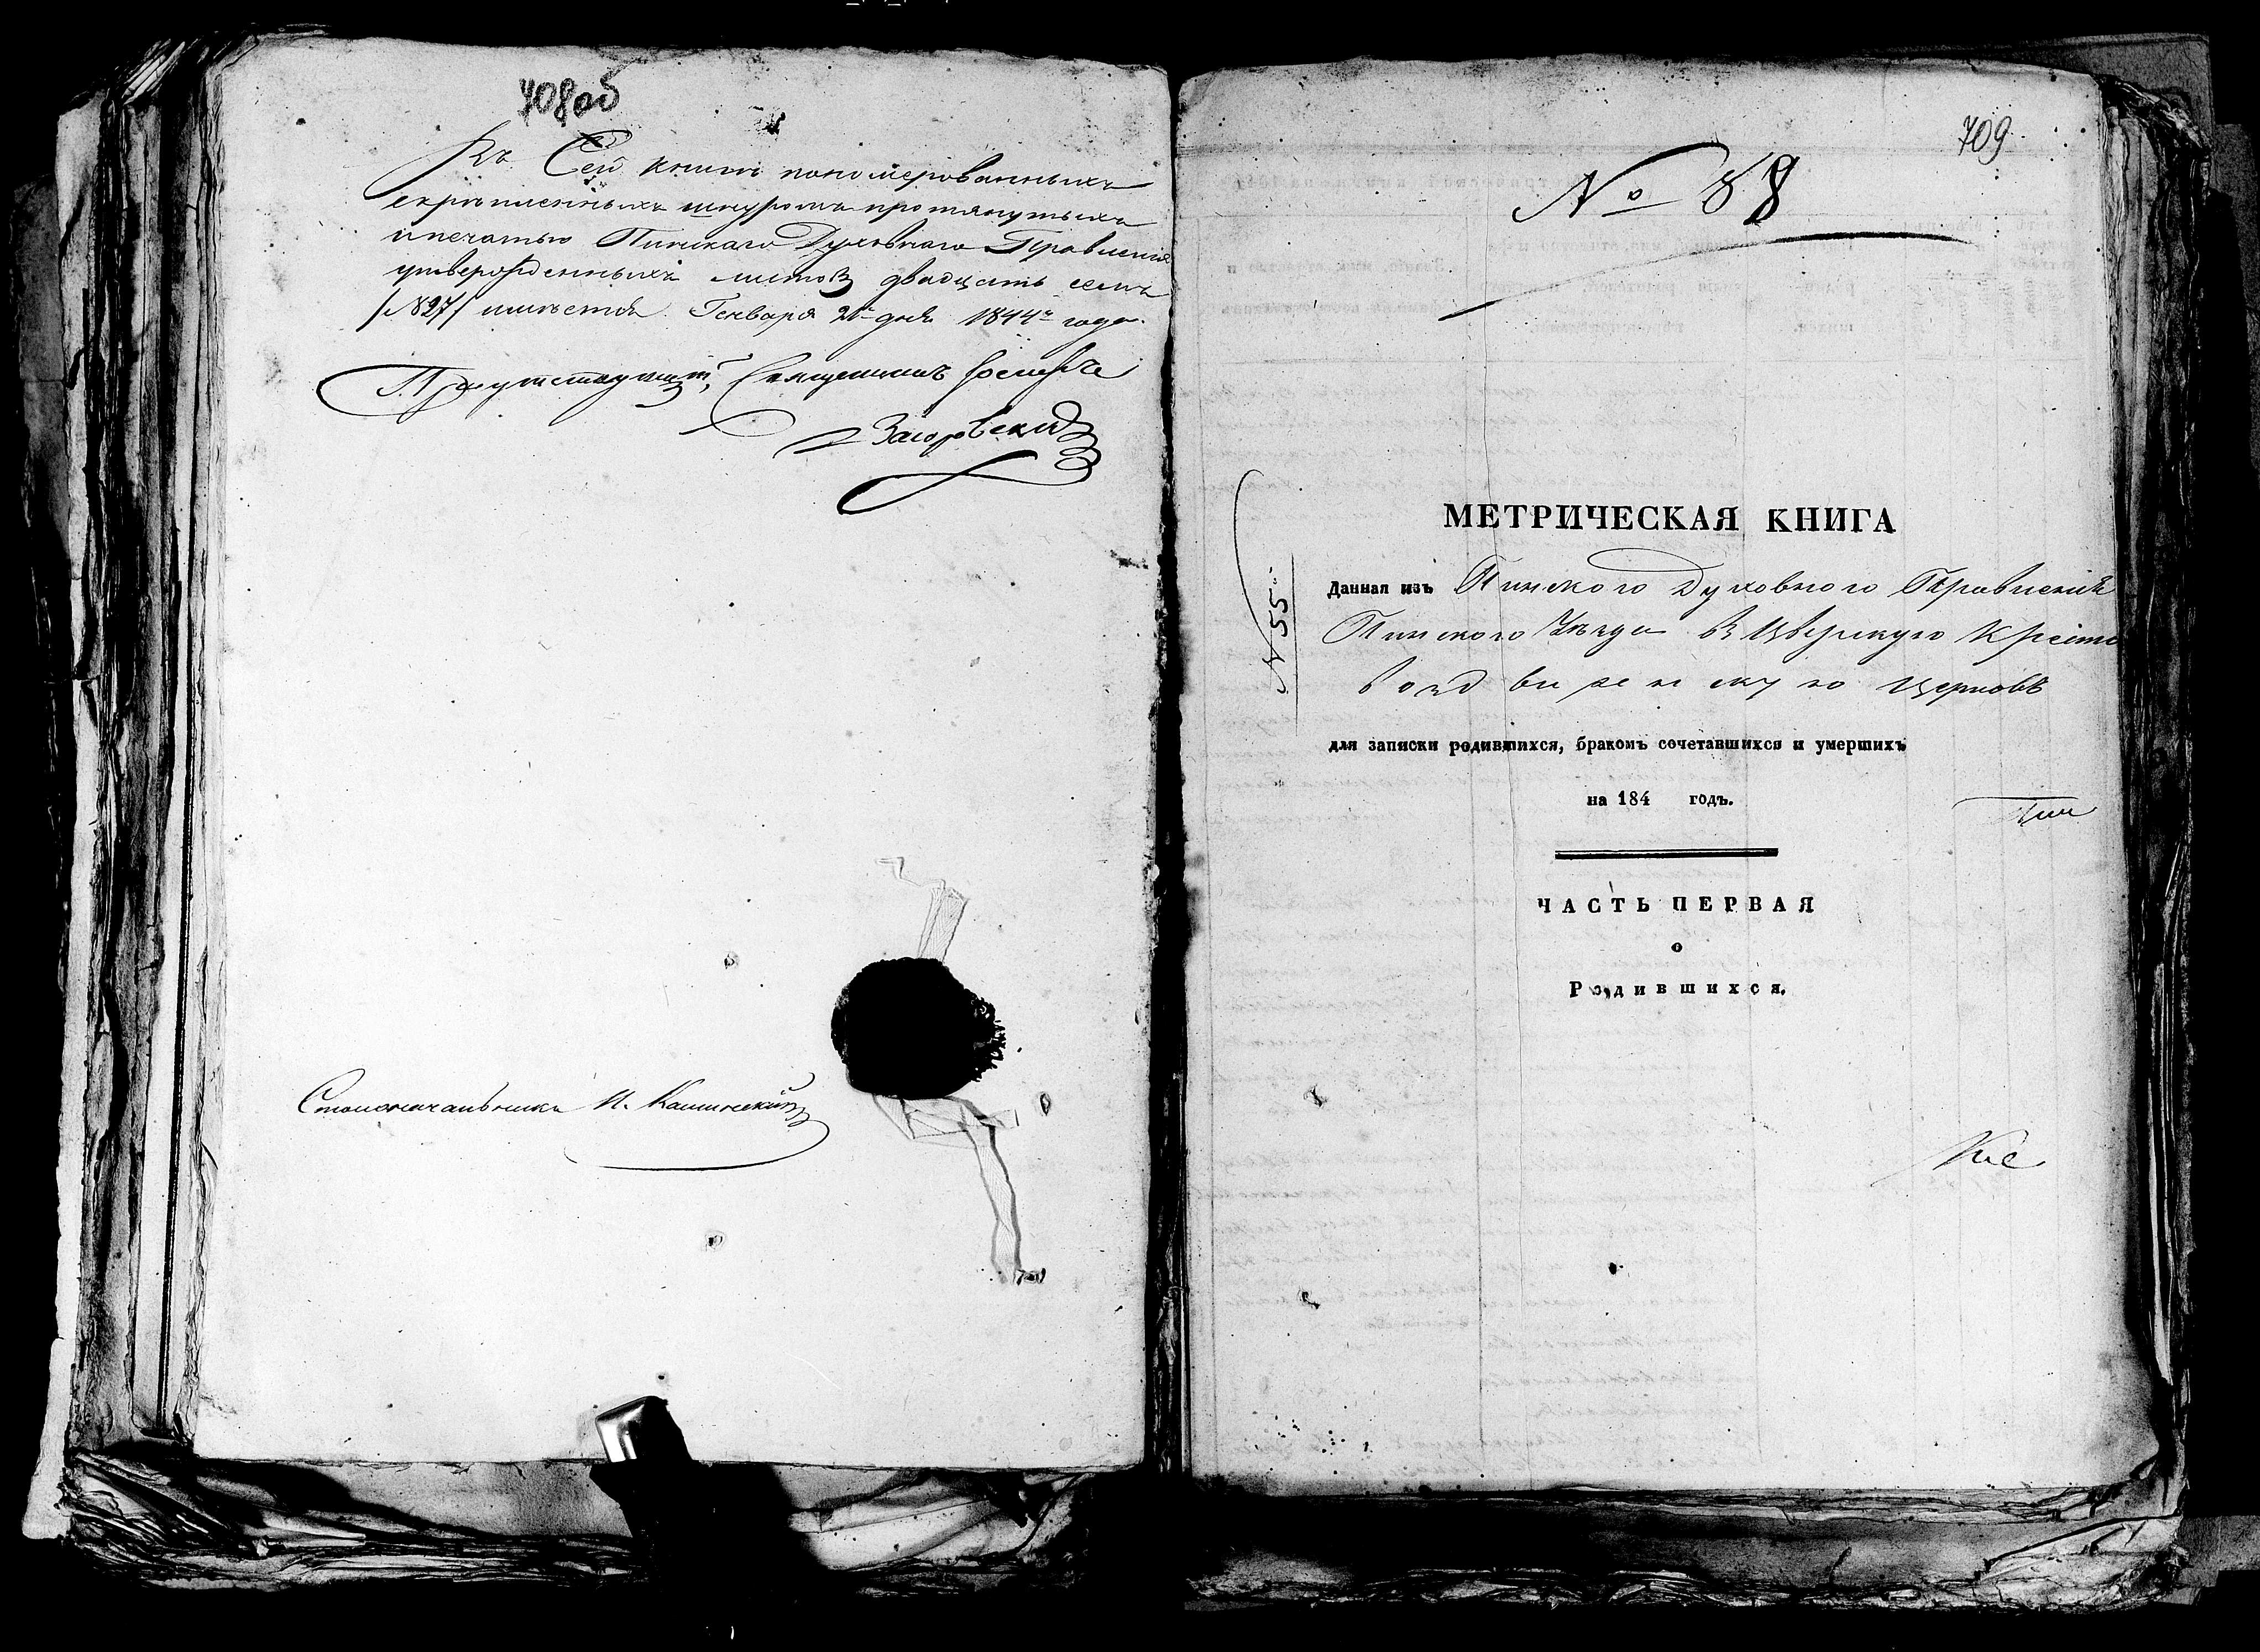 708об
Къ Сей книгѣ пономерованныхъ
скрѣпленныхъ шнуромъ протянутыхъ
и печатью Пинскаго Духовнаго Правленія
утвержденныхъ листовъ двадцать семь
/№27/ имѣется. Генваря дня 1844го года.
Присутствующій, Священникъ Іосифъ
Загоровскій
Столоначальникъ И.
709
№ 88
МЕТРИЧЕСКАЯ КНИГА
Данная изъ Пинского Духовного Правленія
Пинского Уѣзда въ Цверскую Кресто
воздвиженскую церковь
№ 55
для записки родившихся, бракомъ сочетавшихся и умершихъ
на 184 годъ.
Пин
ЧАСТЬ ПЕРВАЯ
о
Родившихся.